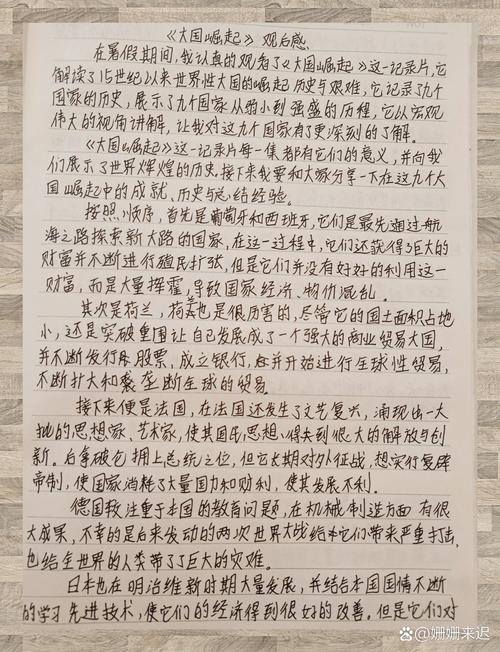 《大国崛起》观后感
在暑假期间,我认真的观看了《大国崛起》这一记录片,它
解读了15世纪以来世界性大国的崛起历史与艰难,它记录了九个
国家的历史,展示了九个国家从弱小到强盛的历程,它以宏观
伟大的视角讲解,让我对这九个国家有了更深刻的了解。
《大国崛起》这一记录片每一集都有它们的意义,并向我
们展示了世界辉煌的历史,接下来我要和大家分享一下在这九个大
国崛起中的成就、历史与总结经验。
按照顺序,首先是葡萄牙和西班牙,它们是最先通过航
海之路探索新大路的国家,在这一过程中,它们还获得了巨大的
财富并不断进行殖民扩张,但是它们并没有好好的利用这一
财富,而是大量挥霍,导致国家经济、物价混乱。
其次是荷兰,荷兰也是很厉害的,尽管它的国土面积占地
小,还是突破重围让自己发展成了一个强大的商业贸易大国,
并不断发行股票,成立银行,并开始进行全球性贸易,
不断扩大和垄断全球的贸易。
接下来便是法国,在法国还发生了文艺复兴,涌现出一大
批的思想家、艺术家,使其国民思想得到很大的解放与创
新。后拿破仑拥上总统之位,但它长期对外征战,想实行复辟
帝制,使国家消耗了大量国力和财利,使其发展不利。
德国注重于本国的教育问题,在机械制造方面有很
大成果,不幸的是后来发动的两次世界大战给它们带来严重打击,
也给全世界的人类带了了巨大的灾难。
日本也在明治维新时期大量发展,并结合本国国情不断
的学习先进技术,使它们的经济得到很好的改善。但是它们对
Baidu百科 @姗姗来迟